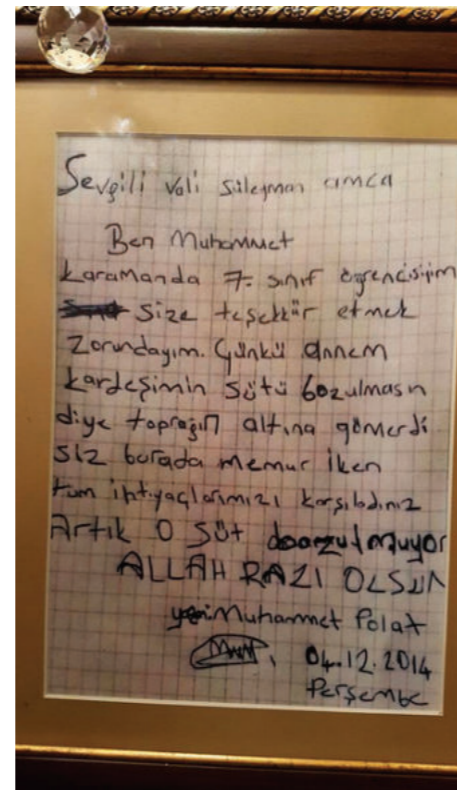 Sevgili Vali Süleyman amca
Ben Muhammet
Karamanda 7. sınıf öğrencisiyim
size teşekkür etmek
zorundayım. Çünkü annem
kardeşimin sütü bozulmasın
diye toprağın altına gömerdi
siz burada memur iken
tüm ihtiyaçlarımızı karşıladınız
Artık o süt bozulmuyor
ALLAH RAZI OLSUN
Muhammet Polat
04.12.2014
Perşembe